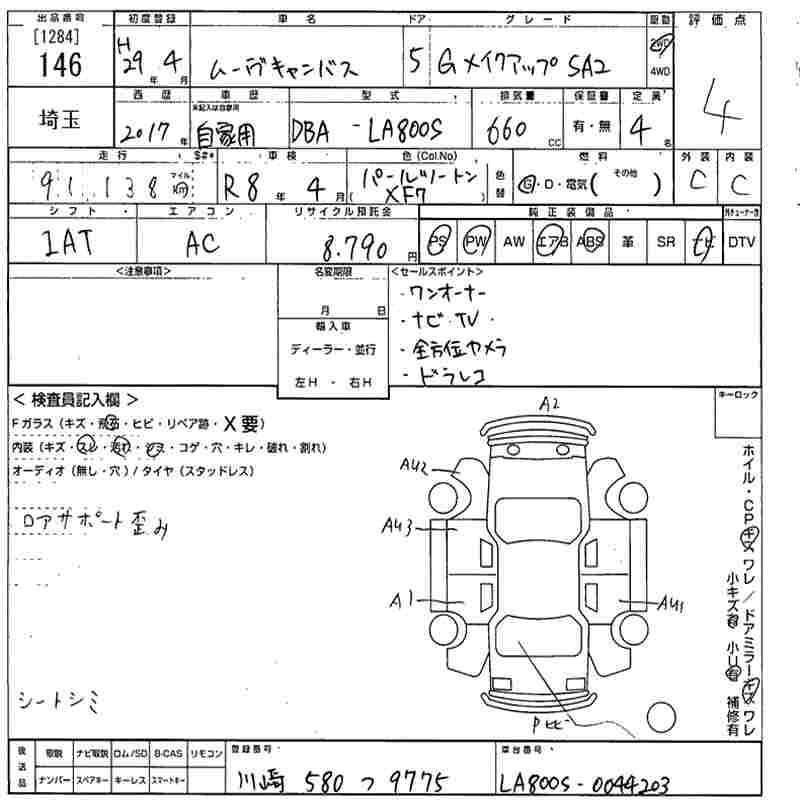 出品番号 初度登録 車名 ドア グレード 駆動 評価点
[1284]
146 H29年4月 ムーヴキャンバス 5 GメイクアップSA2 2WD 4WD 4
埼玉 西暦 車歴 型式 排気量 保証書 定員
未記入は自家用
2017年 自家用 DBA -LA800S 660CC 有・無 4名
走行 車検 色(Col.No) 燃料 外装 内装
91,138 マイル km R8年4月 パールツートン (XF7) 色替 G・D・電気( その他 ) C C
シフト エアコン リサイクル預託金 純正装備品
IAT AC 8.790円 PS PW AW エアB ABS 革 SR ナビ DTV
<注意事項> 名変期限 <セールスポイント>
月 日
・ワンオーナー
・ナビ・TV・
・全方位カメラ
・ドラレコ
輸入車
ディーラー・並行
左H・右H
<検査員記入欄> キーロック
Fガラス(キズ・飛石・ヒビ・リペア跡・X要)
内装(キズ・スレ・汚れ・シミ・コゲ・穴・キレ・破れ・割れ)
オーディオ(無し・穴)/タイヤ(スタッドレス)
ロアサポート歪み
シートシミ
A2
AU2
AU3
A1
AU1
Pヒビ
ホイル・CPキズワレ/ドアミラーキズワレ
小キズ有 小U有 補修有
後送品 取説 ナビ取説 ロム/SD B-CAS リモコン
ナンバー スペアキー キーレス スマートキー
登録番号 川崎 580 つ 9775
車台番号 LA800S-0044203